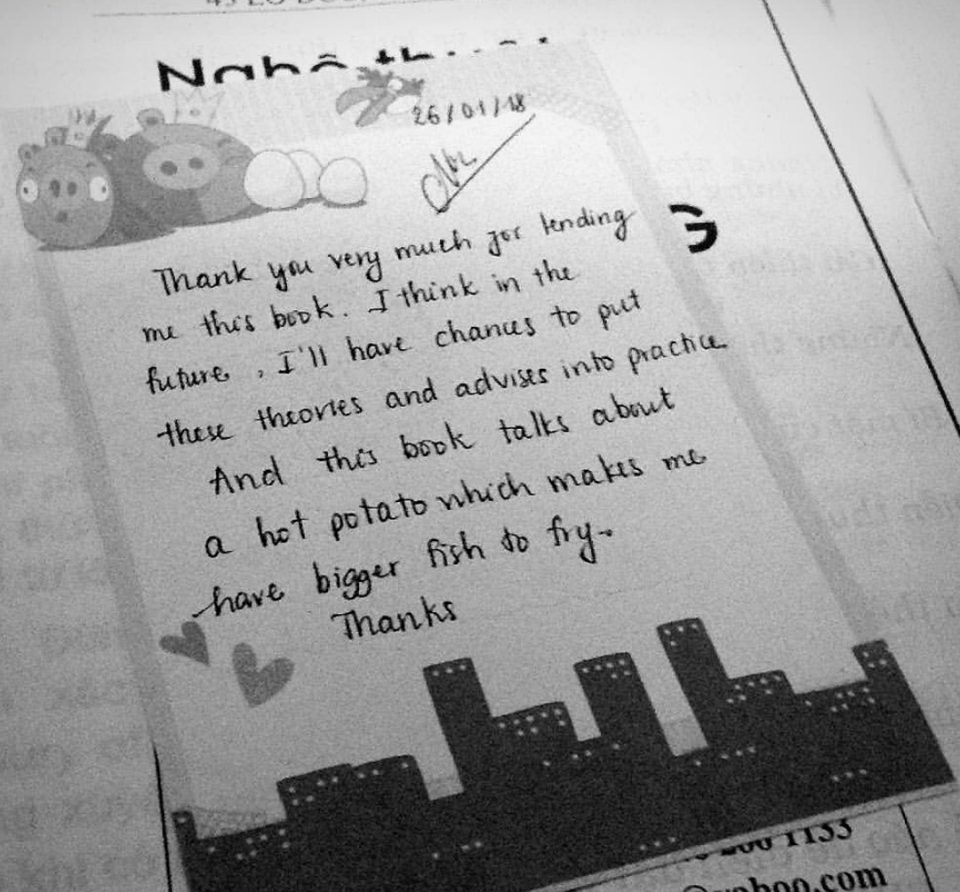 Nghệ thuật
26/01/18
Thank you very much for lending
me this book. I think in the
future, I'll have chances to put
these theories and advises into practice
And this book talks about
a hot potato which makes me
have bigger fish to fry.
Thanks
G
200 1133
@yahoo.com